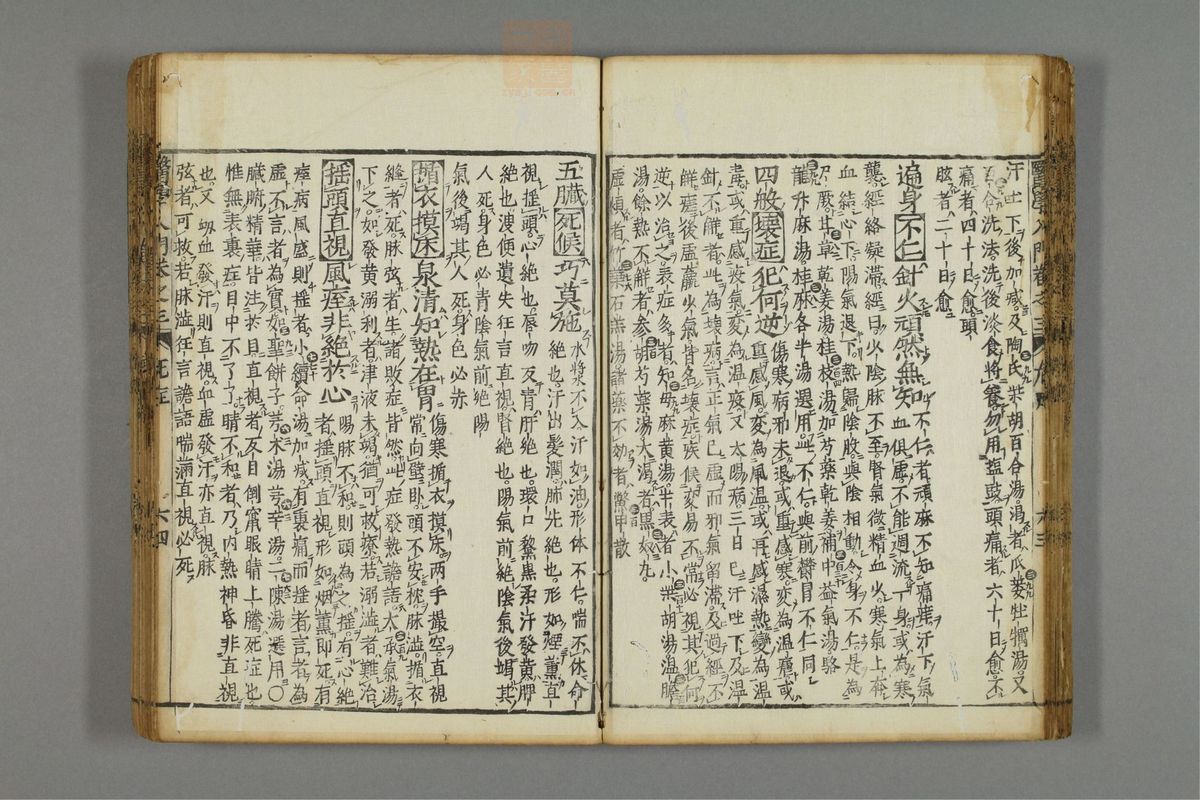 汗吐下後加減及陶氏柴胡百合湯渴者瓜蔞牡蠣湯又
洗法洗後淡食將養勿用鹽豉頭痛者六十日愈不
痛者四十日愈頭
眩者二十日愈
遍身不仁針火頑然無知不仁者頑麻不知痛痒汗下氣
血俱虛不能週流一身或為寒
襲經絡凝滯經曰少陰脉不至腎氣微精血少寒氣上奔
血結心下陽氣退下熱歸陰股與陰相動令身不仁是為
尸厥甘草乾姜湯桂枝湯加芍藥乾姜補中益氣湯
龍升麻湯桂麻各半湯選用此不仁與前欝冒不仁同
四般壞症犯何逆傷寒病邪未退或重感寒變為温瘧或
重感風變為風温或再感濕熱變為温
毒或重感疫氣變為温疫又太陽病三日已汗吐下及温
針不解者此為壞病言正氣已虛而邪氣留滯及過經不
解瘥後虛羸少氣皆名壞症疾候變易不常必視其犯何
逆以治之表症多者知母麻黄湯半表者小柴胡湯温膽
湯餘熱不解者參胡芍藥湯大渴者黒奴丸
虛煩者竹葉石羔湯諸藥不効者鱉甲散
五臟死候巧莫施水漿不入汗如油形体不仁喘不休命
絶也汗出髮潤肺先絶也形如煙薰直
視揺頭心絶也唇吻反青肝絶也環口黧黒柔汗發黄脾
絶也溲便遺失狂言直視腎絶也陽氣前絶陰氣後竭其
人死身色必青陰氣前絶陽
氣後竭其人死身色必赤
揗衣摸床泉清知熱在胃傷寒揗衣摸床両手撮空直視
常向壁卧頭不安枕脉澁揗衣
縫者死脉弦者生諸敗症皆然此症發熱譫語大承氣湯
下之如發黄溺利者津液未竭猶可救療若溺澁者難治
揺頭直視風痓非絶於心陽脉不和則頭為之揺有心絶
者揺頭直視形如烟薰即死有
痓病風盛則揺者小續命湯加減有裏痛而揺者言者為
虛不言者為實如聖餅子芎术湯芎辛湯二陳湯選用〇
臟腑精華皆注於目直視者反目倒竄眼睛上騰死症也
惟無表裏症目中不了了睛不和者乃内熱神昏非直視
也又衂血發汗則直視血虛發汗亦直視脉
弦者可救若脉澁狂言譫語喘満直視必死
醫學入門卷之三
死症
六四
六三